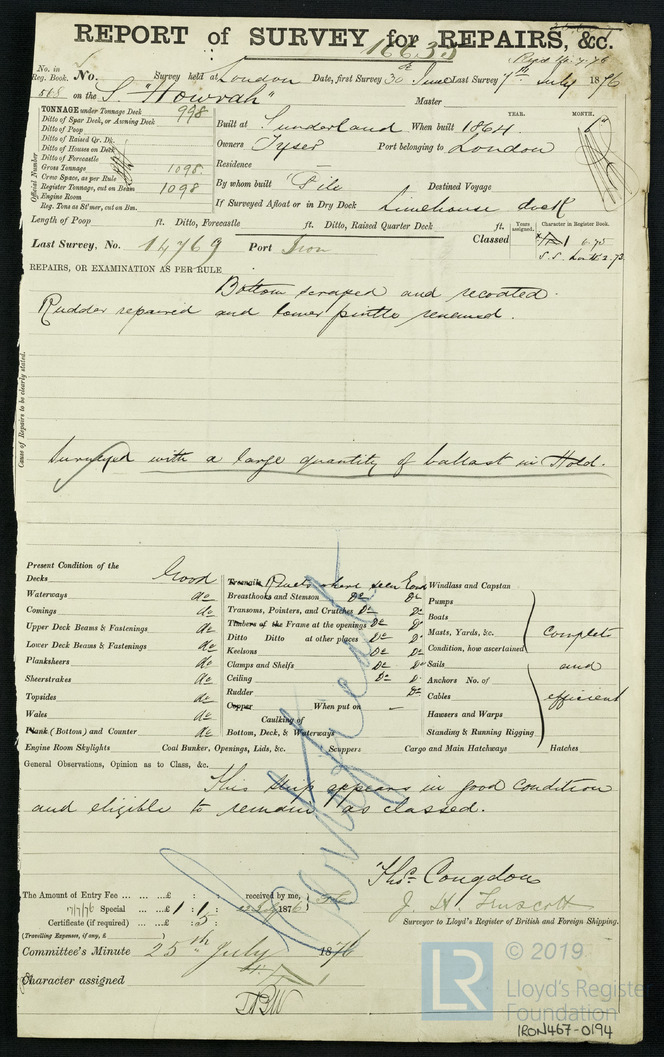 REPORT of SURVEY for REPAIRS, &c.
16635
No. in Reg. Book. No. Survey held at London Date, first Survey 30th June Last Survey 7th July 1876
505 on the S. "Howrah" Master
TONNAGE under Tonnage Deck 998
Ditto of Spar Deck, or Awning Deck
Ditto of Poop
Ditto of Raised Qr. Dk.
Ditto of Houses on Deck
Ditto of Forecastle
Gross Tonnage 1098
Crew Space, as per Rule
Register Tonnage, cut on Beam 1098
Engine Room
Reg. Tons as St'mer, cut on Bm.
Official Number
YEAR. MONTH.
Built at Sunderland When built 1864
Owners Tyser Port belonging to London
Residence —
By whom built Pile Destined Voyage
If Surveyed Afloat or in Dry Dock Limehouse dock
Length of Poop ft. Ditto, Forecastle ft. Ditto, Raised Quarter Deck ft.
Years assigned. Character in Register Book.
Last Survey, No. 14769 Port Iron Classed
REPAIRS, OR EXAMINATION AS PER RULE
Bottom scraped and recoated.
Rudder repaired and lower pintle renewed.
Cause of Repairs to be clearly stated.
Surveyed with a large quantity of ballast in Hold.
Present Condition of the
Decks Good
Waterways do
Comings do
Upper Deck Beams & Fastenings do
Lower Deck Beams & Fastenings do
Planksheers do
Sheerstrakes do
Topsides do
Wales do
Plank (Bottom) and Counter do
Treenails Rivets where seen Good
Breasthooks and Stemson Do Do
Transoms, Pointers, and Crutches Do Do
Timbers of the Frame at the openings Do Do
Ditto Ditto at other places Do Do
Keelsons Do Do
Clamps and Shelfs Do Do
Ceiling Do Do
Rudder Do
Copper When put on —
Caulking of
Bottom, Deck, & Waterways
Windlass and Capstan
Pumps
Boats
Masts, Yards, &c.
Condition, how ascertained
Sails
Anchors No. of
Cables
Hawsers and Warps
Standing & Running Rigging
complete
and
efficient
Engine Room Skylights Coal Bunker, Openings, Lids, &c. Scuppers Cargo and Main Hatchways Hatches
General Observations, Opinion as to Class, &c.
This ship appears in good condition
and eligible to remain as classed.
Thos. Congdon
J. H. Truscott
Surveyor to Lloyd's Register of British and Foreign Shipping.
The Amount of Entry Fee ... ... £ : : received by me,
7/7/76 Special ... £ 1 : 1 : 1876
Certificate (if required) ... : 5 :
(Travelling Expenses, if any, £ )
Committee's Minute 25th July 1876
Character assigned
© 2019
LR
Lloyd's Register
Foundation
IRON467-0194